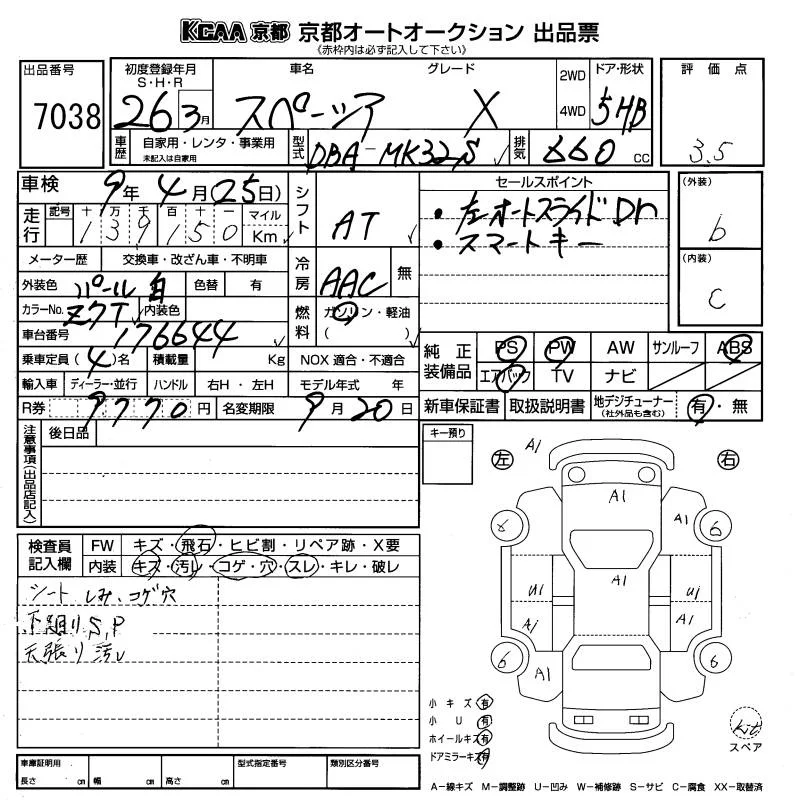 KCAA 京都 京都オートオークション 出品票
(赤枠内は必ず記入して下さい)
出品番号
7038
初度登録年月
S・H・R
26 3月
車名
スペーシア
グレード
X
2WD
4WD
ドア・形状
5HB
評価点
3.5
車歴
自家用・レンタ・事業用
未記入は自家用
型式
DBA-MK32S
排気
660 cc
車検
9年4月(25日)
走行
記号 十 万 千 百 十 一
139150
マイル
Km
シフト
AT
セールスポイント
・左オートスライドDr
・スマートキー
(外装)
b
(内装)
C
メーター歴 交換車・改ざん車・不明車
外装色 パール白 色替 有
冷房
AAC
無
カラーNo. Z7T 内装色
燃料
ガソリン・軽油
( )
車台番号 176644
乗車定員 (4)名 積載量 Kg NOX 適合・不適合
輸入車 ディーラー・並行 ハンドル 右H・左H モデル年式 年
R券 9770円 名変期限 9月20日
純正装備品
PS PW AW サンルーフ ABS
エアバック TV ナビ
新車保証書 取扱説明書 地デジチューナー
(社外品も含む)
有・無
注意事項(出品店記入)
後日品
キー預り
左
右
A1
A1
A1
6
A1
U1
U1
A1
A1
6
6
A1
検査員記入欄
FW キズ・飛石・ヒビ割・リペア跡・X要
内装 キズ・汚レ・コゲ・穴・スレ・キレ・破レ
シート しみ、コゲ穴
下廻りS,P
天張り汚レ
小キズ 有
小U 有
ホイールキズ 有
ドアミラーキズ 有
kit
スペア
車庫証明用
長さ cm 幅 cm 高さ cm
型式指定番号
類別区分番号
A-線キズ M-調整跡 U-凹み W-補修跡 S-サビ C-腐食 XX-取替済